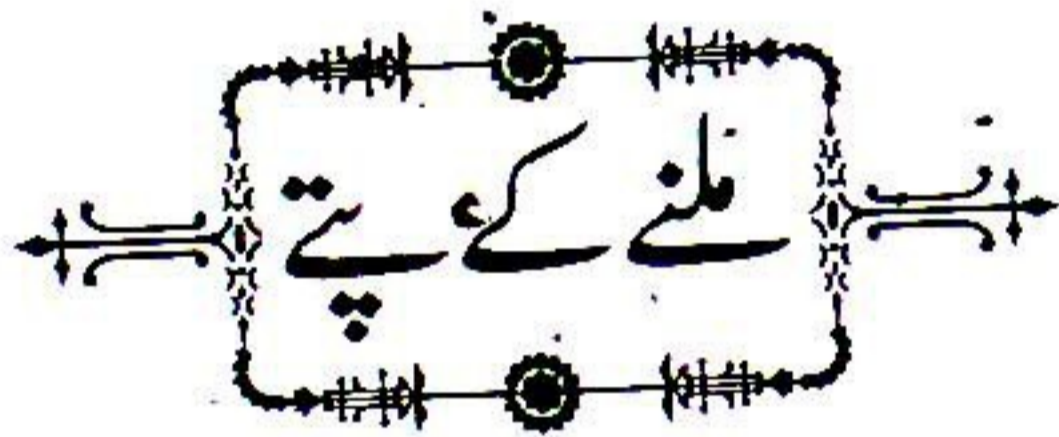 ملنے کے پتے